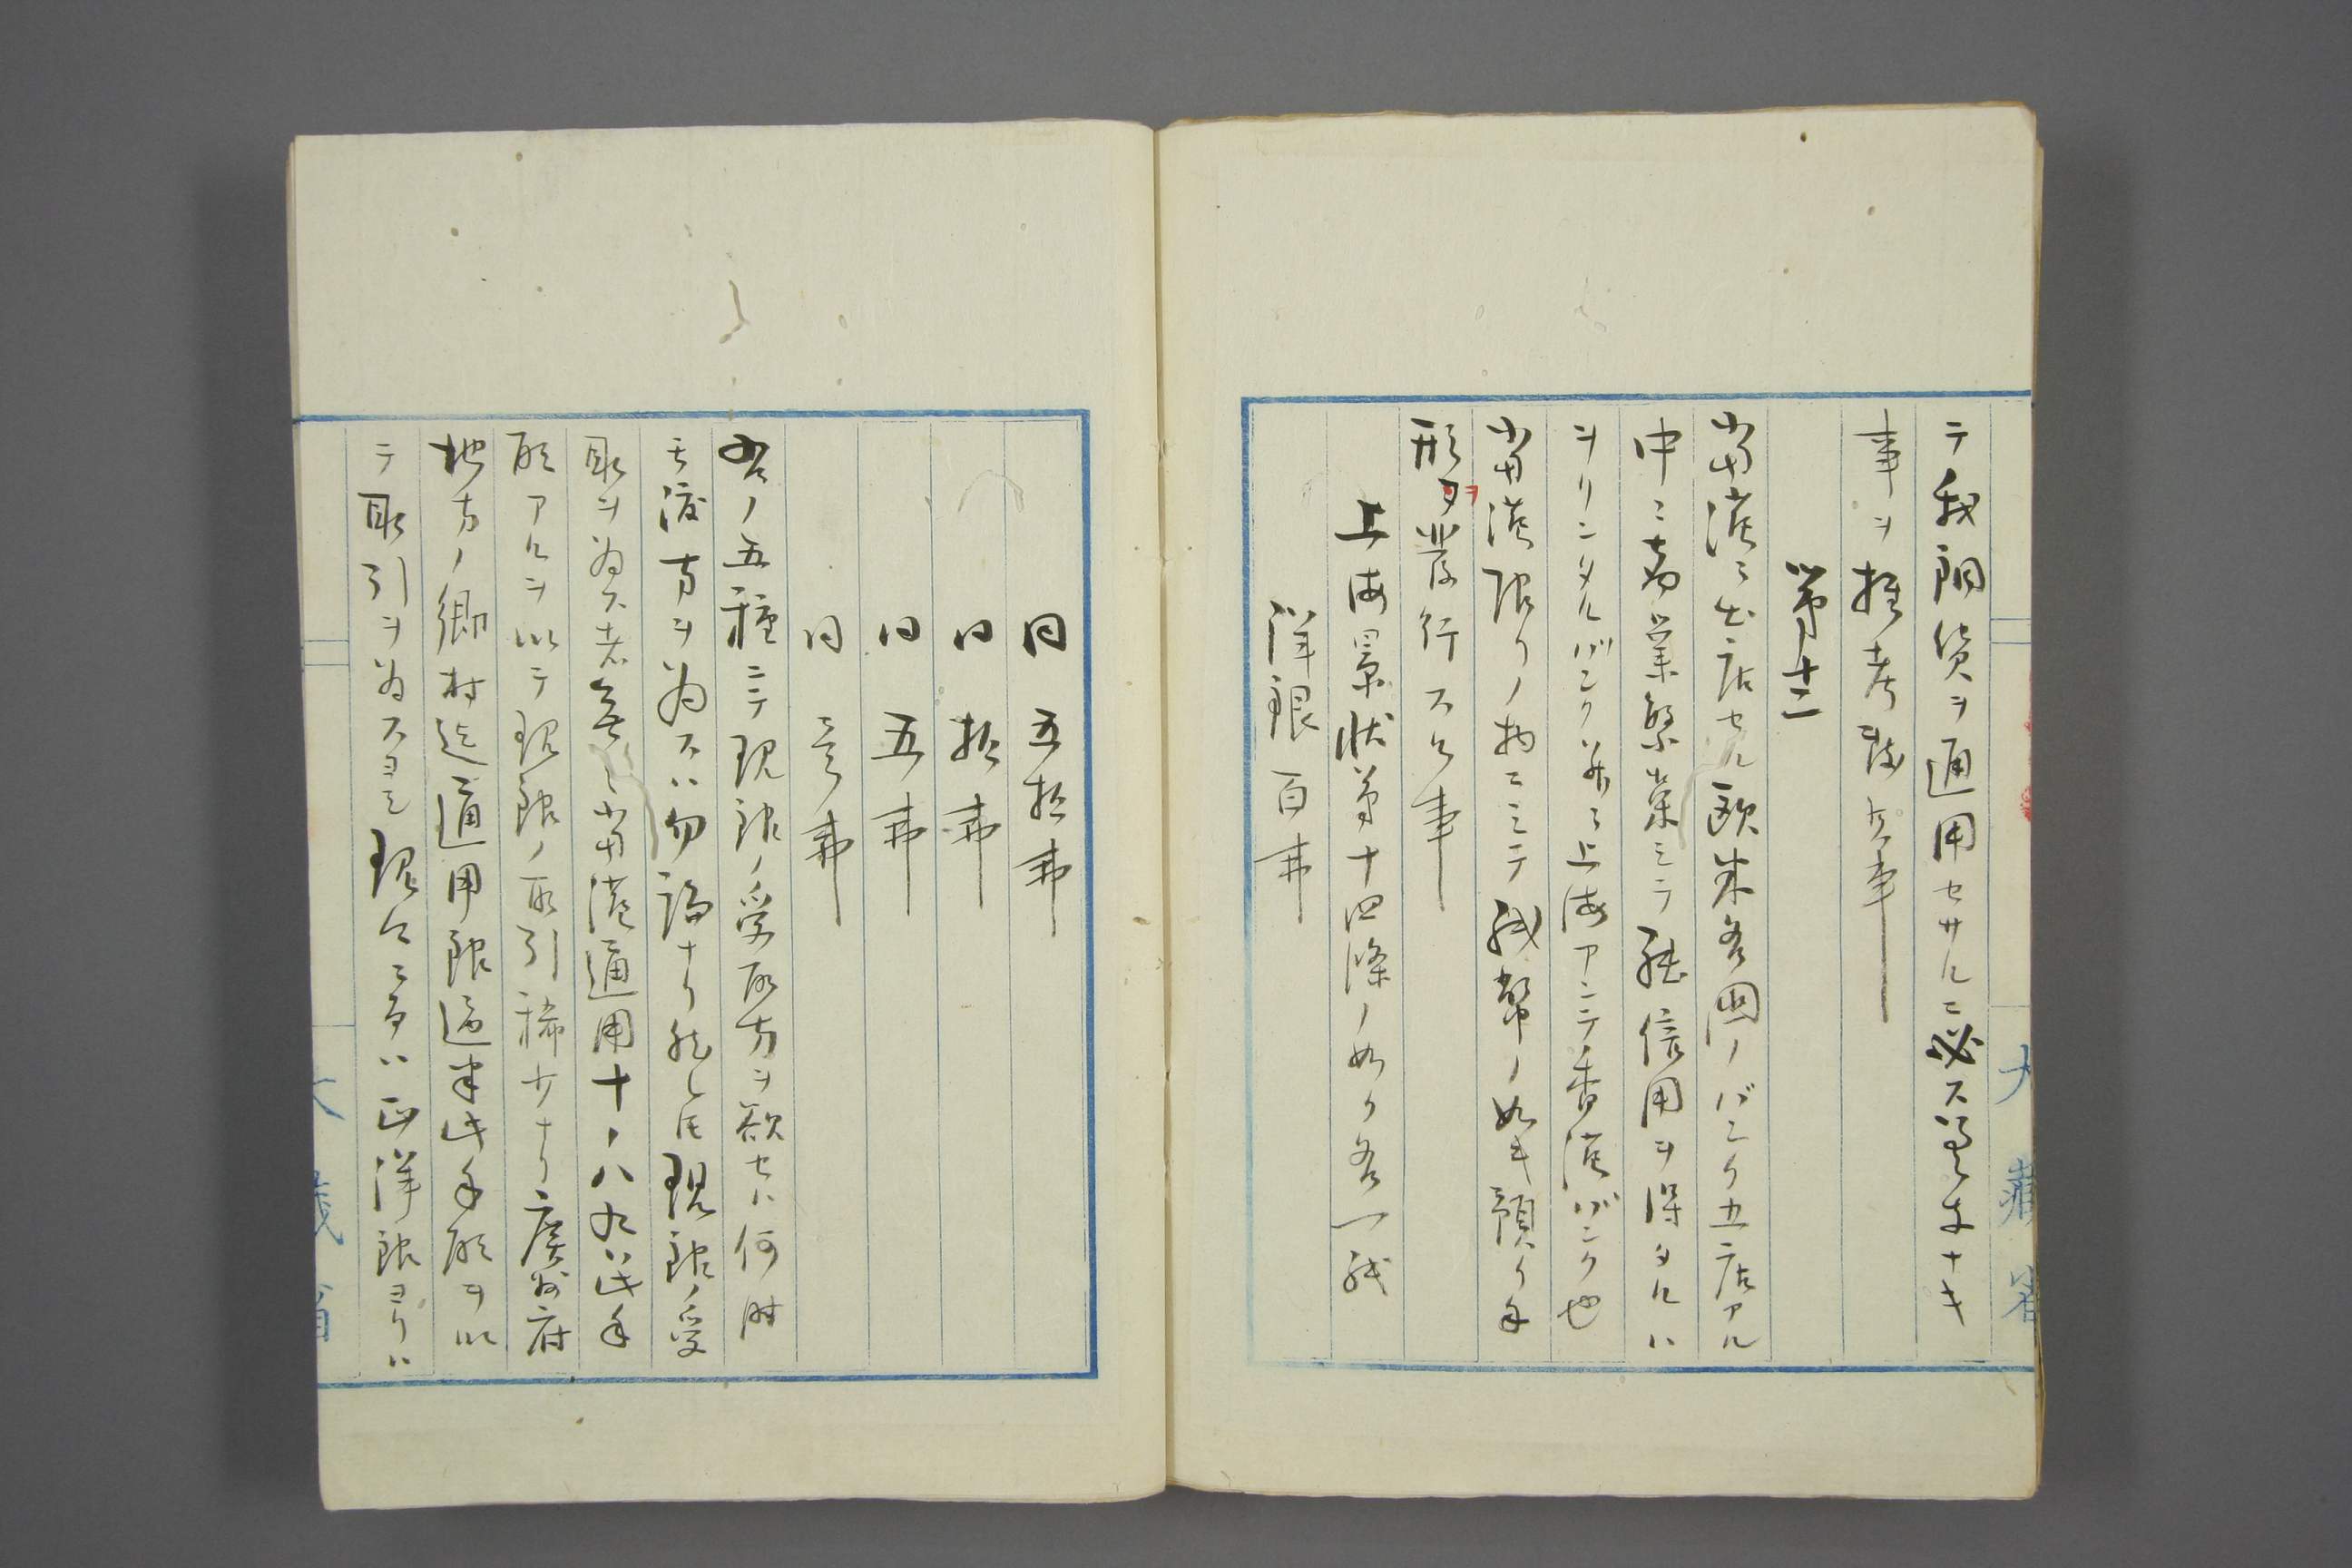 テ我銅貨ヲ通用セサルニ必ス差支ナキ
事ヲ推考致候事
第十二
当港ニ出店セル欧米各國ノバンク五店アル
中ニ商業繁栄ニシテ能信用ヲ得タルハ
ヲリンタルバンク并ニ上海アンテ香港バンク也
当港限リノ物ニシテ紙幣ノ如キ預リ手
形ヲ発行スル事
上海景状第十四條ノ如ク各一紙
洋銀百弗
同五拾弗
同拾弗
同五弗
同壱弗
右ノ五種ニテ現銀ノ受取方ヲ欲セハ何時
モ渡方ヲ為スハ勿論ナリ然レ𪜈現銀ノ受
取ヲ為ス者無シ当港通用十ノ八九ハ此手
形アルヲ以テ現銀ノ取引稀少ナリ廣州府
地方ノ郷村迄通用銀過半此手形ヲ以
テ取引ヲ為スヨシ現今ニ而ハ正洋銀ヨリハ
大藏省
大藏省